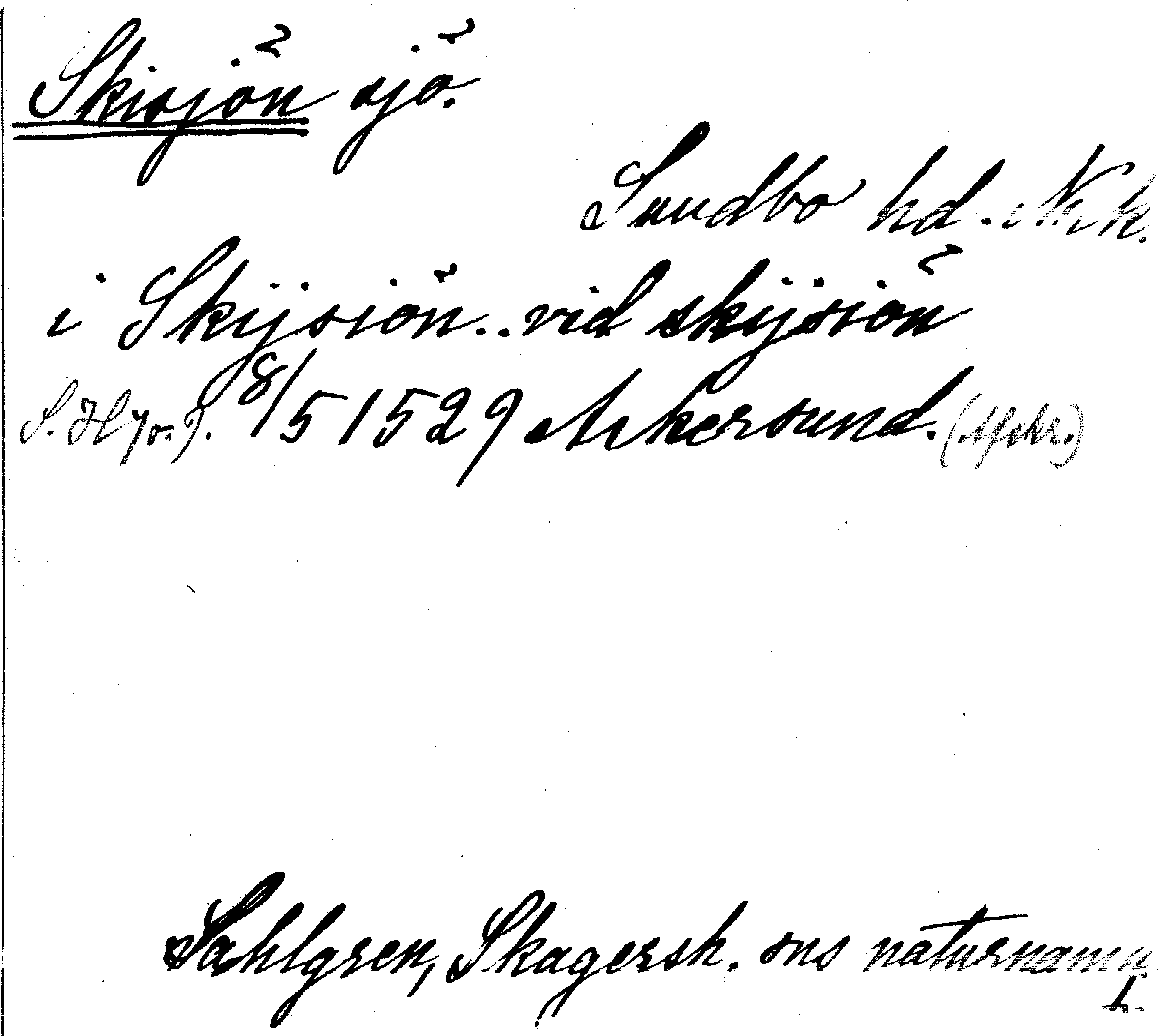 Skisjön sjö.
Sundbo hd. Nrk.
i Skijsiön.. vid skijsiön
8/5 1529 Askersund. (Afskr.)
Sahlgren, Skagersh. sns naturnamn
1.